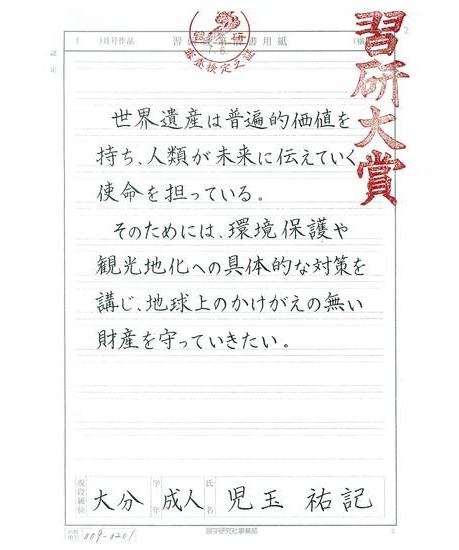 ( )月号作品
習研
用紙
審査検定之証
習研大賞
認定
世界遺産は普遍的価値を
持ち、人類が未来に伝えていく
使命を担っている。
そのためには、環境保護や
観光地化への具体的な対策を
講じ、地球上のかけがえの無い
財産を守っていきたい。
現段級位
大分
学年
成人
氏名
児玉 祐記
009-0201
習字研究社事業部